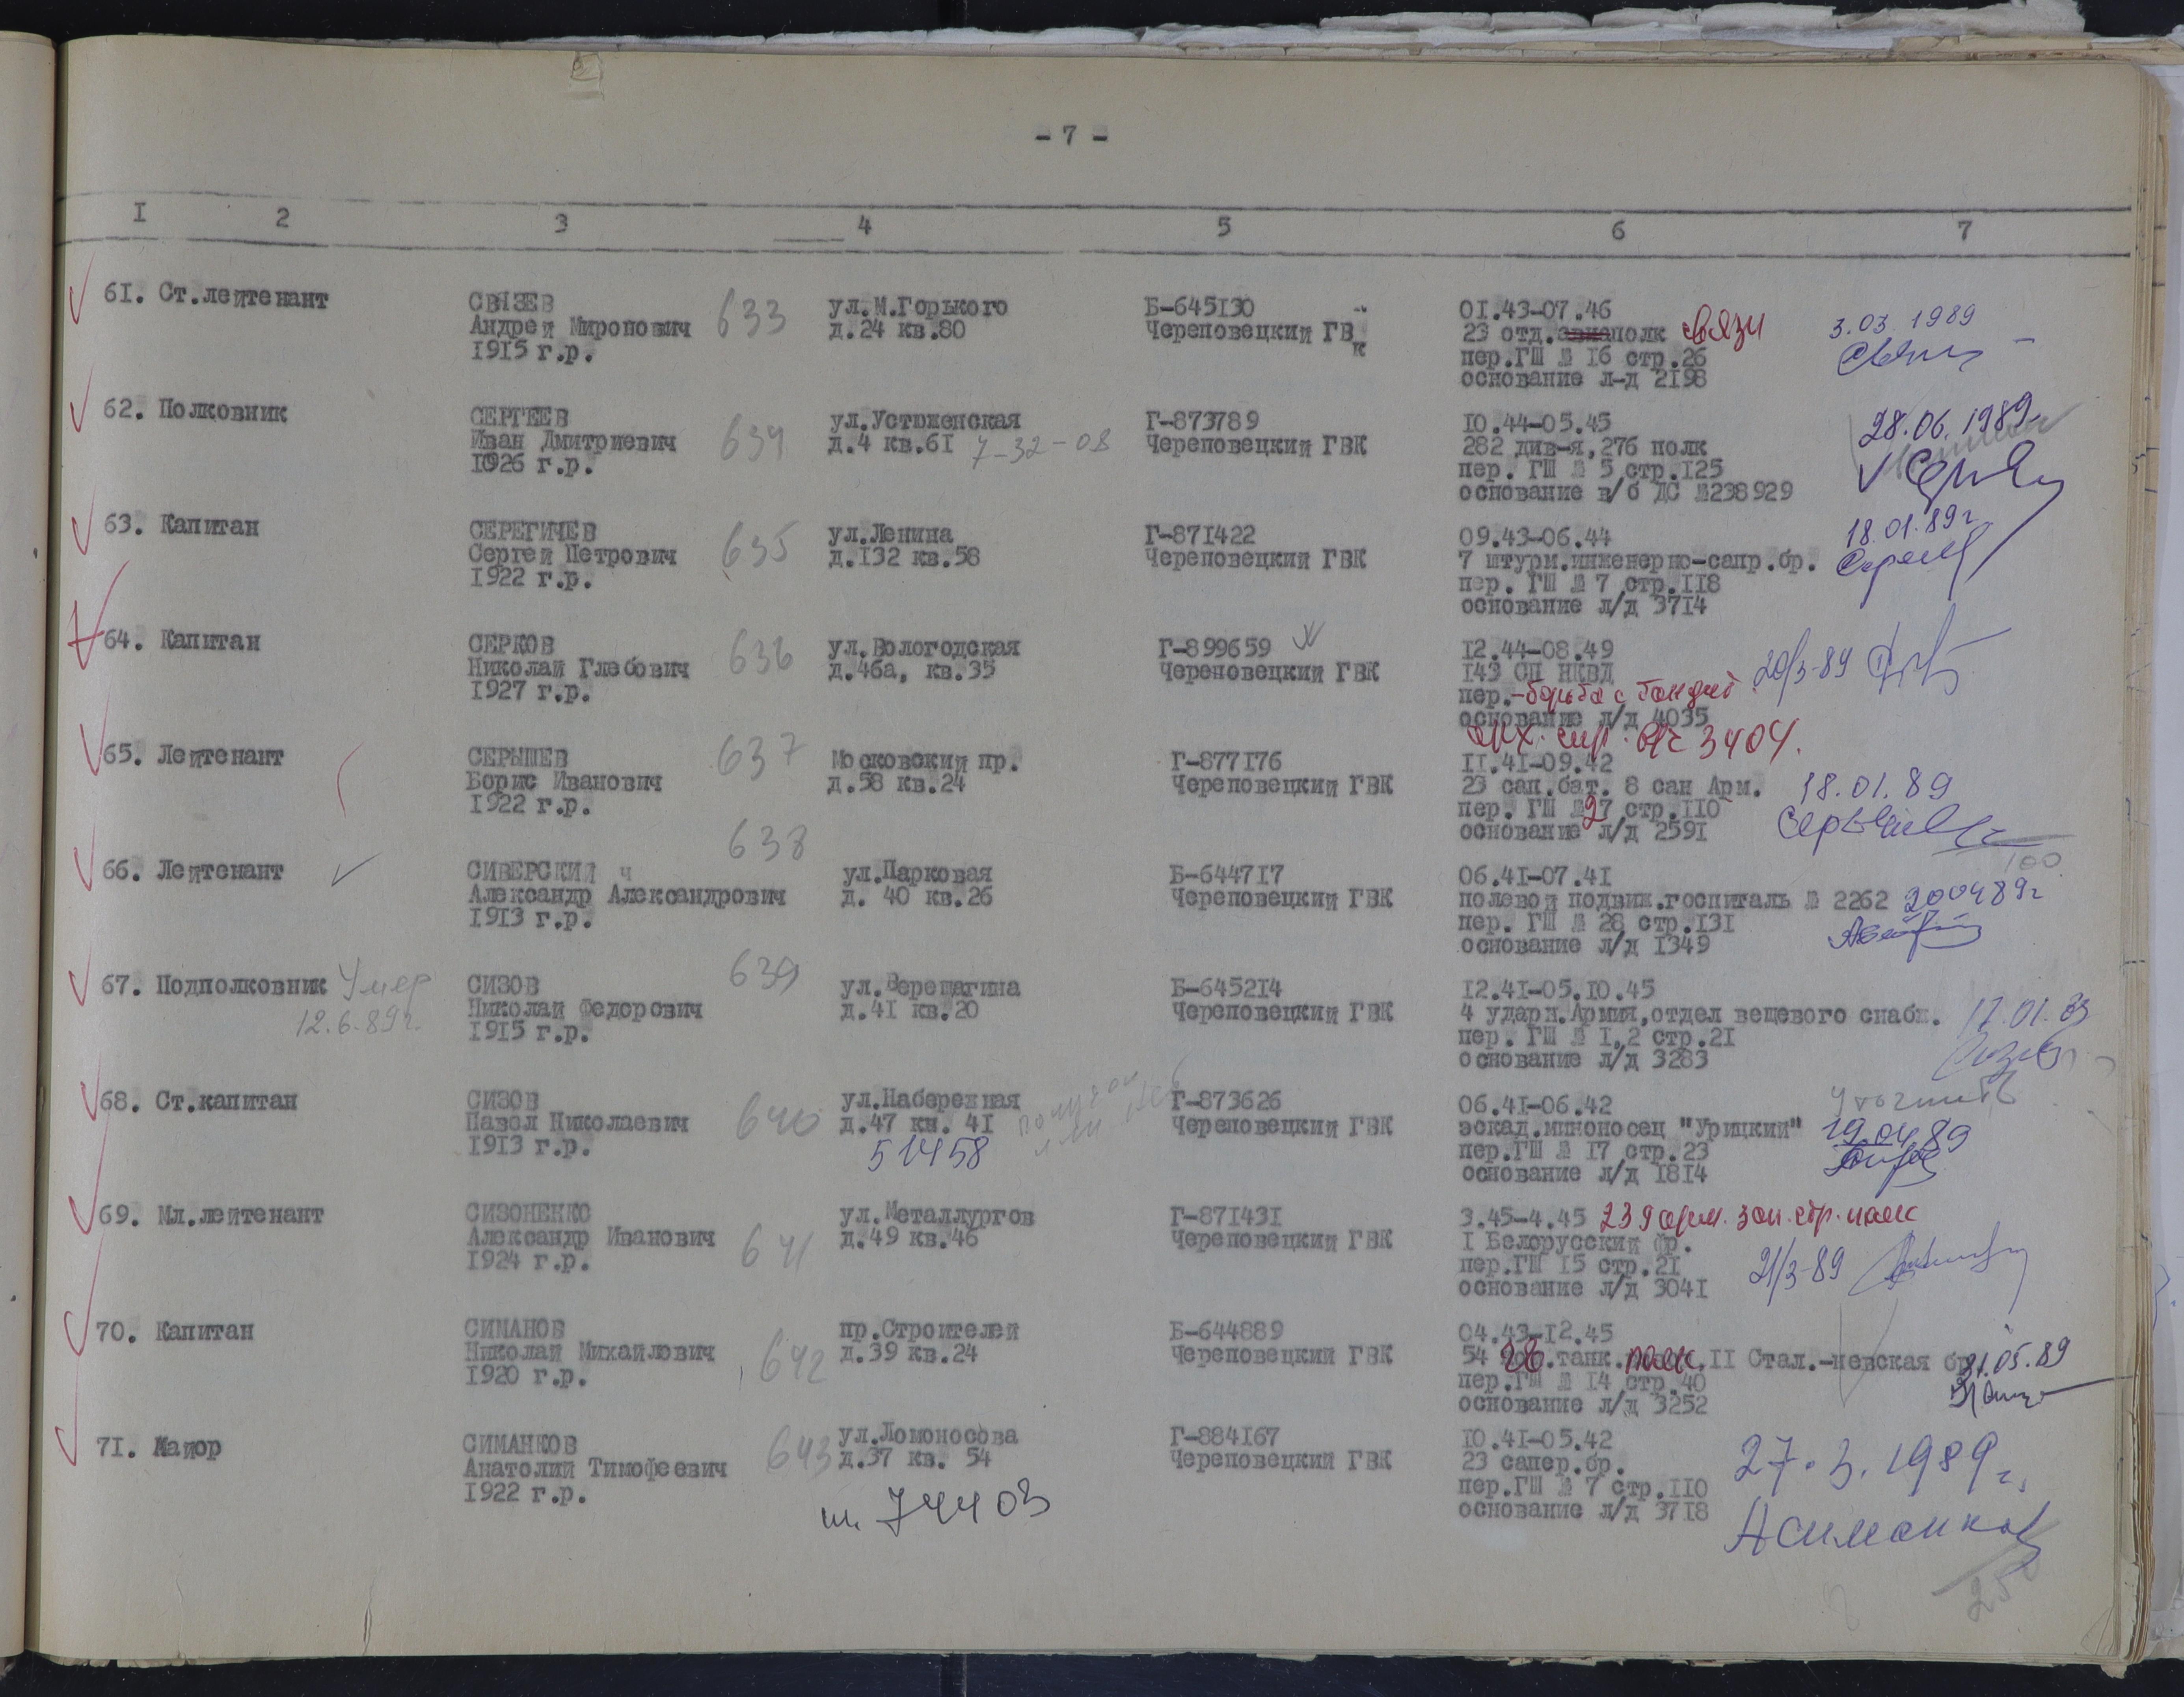 - 7 -
I 2 3 4 5 6 7
61. Ст.лейтенант
СВЯЗЕВ
Андрей Миронович
1915 г.р.
633
ул.М.Горького
д.24 кв.80
Б-645130
Череповецкий ГВ
к
01.43-07.46
23 отд.авиаполк связи
пер.ГШ № 16 стр.26
основание л-д 2198
3.03.1989
62. Полковник
СЕРГЕЕВ
Иван Дмитриевич
1926 г.р.
634
ул.Устюженская
д.4 кв.61 7-32-08
Г-873789
Череповецкий ГВК
10.44-05.45
282 див-я,276 полк
пер. ГШ № 5 стр.125
основание в/б ДС №238929
28.06.1989
63. Капитан
СЕРЕГИЧЕВ
Сергей Петрович
1922 г.р.
635
ул.Ленина
д.132 кв.58
Г-871422
Череповецкий ГВК
09.43-06.44
7 штурм.инженерно-сапр.бр.
пер. ГШ № 7 стр.118
основание л/д 3714
18.01.89г
64. Капитан
СЕРКОВ
Николай Глебович
1927 г.р.
636
ул.Вологодская
д.46а, кв.35
Г-899659
Череповецкий ГВК
12.44-08.49
143 СП НКВД
пер.-борьба с бандит
основание л/д 4035
арх. спр. 3404.
20/3-89
65. Лейтенант
СЕРЫШЕВ
Борис Иванович
1922 г.р.
637
Московский пр.
д.58 кв.24
Г-877176
Череповецкий ГВК
11.41-09.42
23 сап.бат. 8 сап Арм.
пер. ГШ №27 стр.110
основание л/д 2591
18.01.89
66. Лейтенант
СИВЕРСКИЙ ч
Александр Александрович
1913 г.р.
638
ул.Парковая
д. 40 кв.26
Б-644717
Череповецкий ГВК
06.41-07.41
полевой подвиж.госпиталь № 2262
пер. ГШ № 28 стр.131
основание л/д 1349
100
200489г
67. Подполковник Умер
12.6.89г.
СИЗОВ
Николай Федорович
1915 г.р.
639
ул.Верещагина
д.41 кв.20
Б-645214
Череповецкий ГВК
12.41-05.10.45
4 ударн.Армия,отдел вещевого снабж.
пер. ГШ № 1,2 стр.21
основание л/д 3283
68. Ст.капитан
СИЗОВ
Павел Николаевич
1913 г.р.
640
ул.Набережная
д.47 кв. 41
51458
Г-873626
Череповецкий ГВК
06.41-06.42
эскад.миноносец "Урицкий"
пер.ГШ № 17 стр.23
основание л/д 1814
уточнить
19.04.89
69. Мл.лейтенант
СИЗОНЕНКО
Александр Иванович
1924 г.р.
641
ул.Металлургов
д.49 кв.46
Г-871431
Череповецкий ГВК
3.45-4.45 239 арм. зап.стр.полк
I Белорусский фр.
пер.ГШ 15 стр.21
основание л/д 3041
21/3-89
70. Капитан
СИМАНОВ
Николай Михайлович
1920 г.р.
642
пр.Строителей
д.39 кв.24
Б-644889
Череповецкий ГВК
04.43-12.45
54 .танк. полк,II Стал.-невская бр.
пер.ГШ № 14 стр.40
основание л/д 3252
31.05.89
71. Майор
СИМАНКОВ
Анатолий Тимофеевич
1922 г.р.
643
ул.Ломоносова
д.37 кв. 54
74403
Г-884167
Череповецкий ГВК
10.41-05.42
23 сапер.бр.
пер.ГШ № 7 стр.110
основание л/д 3718
27.3.1989г.
АСиманков
250